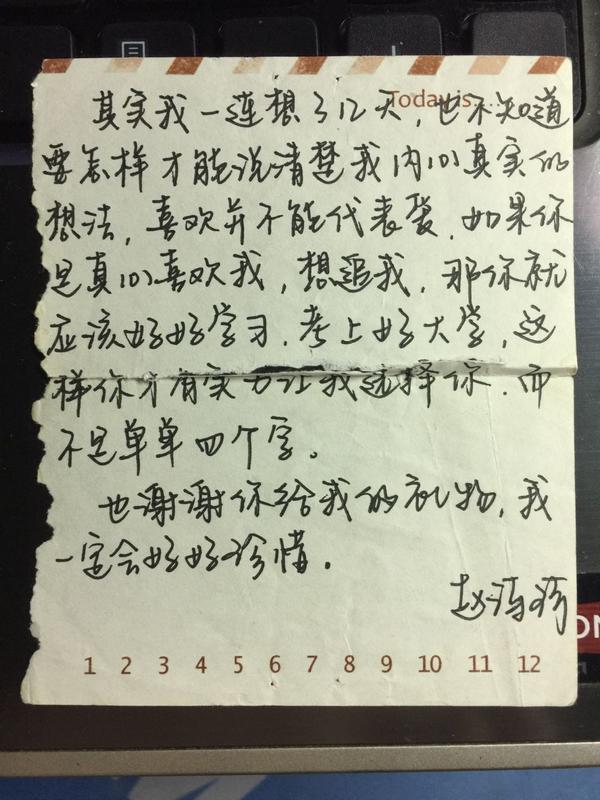 Today is
其实我一连想了12天，也不知道
要怎样才能说清楚我内心真实的
想法，喜欢并不能代表爱．如果你
是真心喜欢我，想追我．那你就
应该好好学习．考上好大学，这
样你才有实力让我选择你．而
不是单单四个字。
也谢谢你给我的礼物，我
一定会好好珍惜．
1 2 3 4 5 6 7 8 9 10 11 12